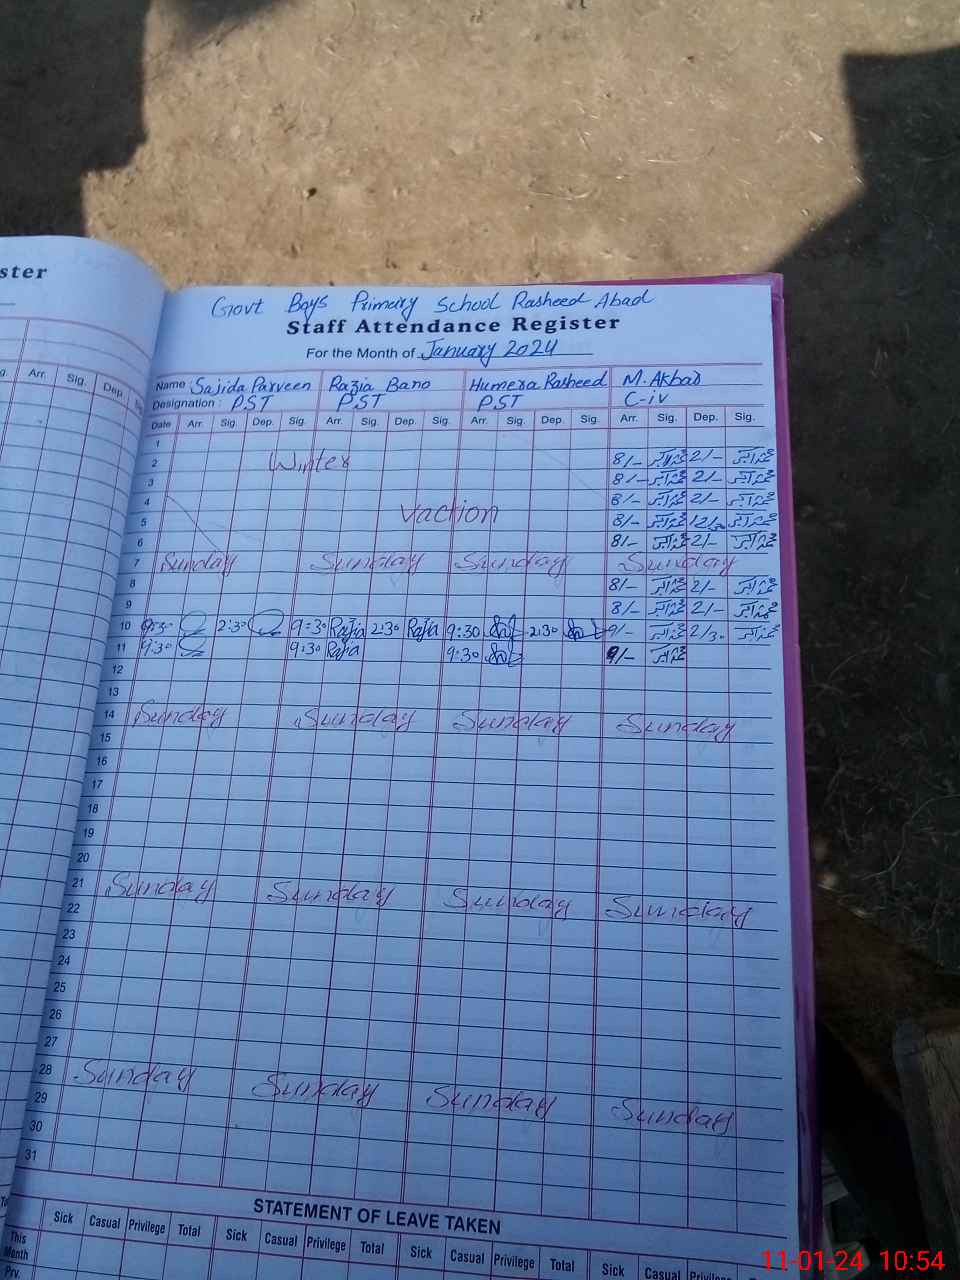 ster
Govt Boys Primary School Rasheed Abad
Staff Attendance Register
For the Month of January 2024
Name : Sajida Parveen Razia Bano Humera Rasheed M. Akbar
Designation : PST PST PST C-iv
Arr. Sig. Dep.
Date Arr. Sig. Dep. Sig. Arr. Sig. Dep. Sig. Arr. Sig. Dep. Sig. Arr. Sig. Dep. Sig.
1
2 Winter 8/- محمد اکبر 2/- محمد اکبر
3 8/- محمد اکبر 2/- محمد اکبر
4 8/- محمد اکبر 2/- محمد اکبر
5 Vaction 8/- محمد اکبر 12/- محمد اکبر
6 8/- محمد اکبر 2/- محمد اکبر
7 Sunday Sunday Sunday Sunday
8 8/- محمد اکبر 2/- محمد اکبر
9 8/- محمد اکبر 2/- محمد اکبر
10 9:30 2:30 9:30 Razia 2:30 Razia 9:30 2:30 9/- محمد اکبر 2/30 محمد اکبر
11 9:30 9:30 Razia 9:30 9/- محمد اکبر
12
13
14 Sunday Sunday Sunday Sunday
15
16
17
18
19
20
21 Sunday Sunday Sunday Sunday
22
23
24
25
26
27
28 Sunday Sunday Sunday Sunday
29
30
31
STATEMENT OF LEAVE TAKEN
Sick Casual Privilege Total Sick Casual Privilege Total Sick Casual Privilege Total Sick Casual Privilege
This Month
Prv.
11-01-24 10:54